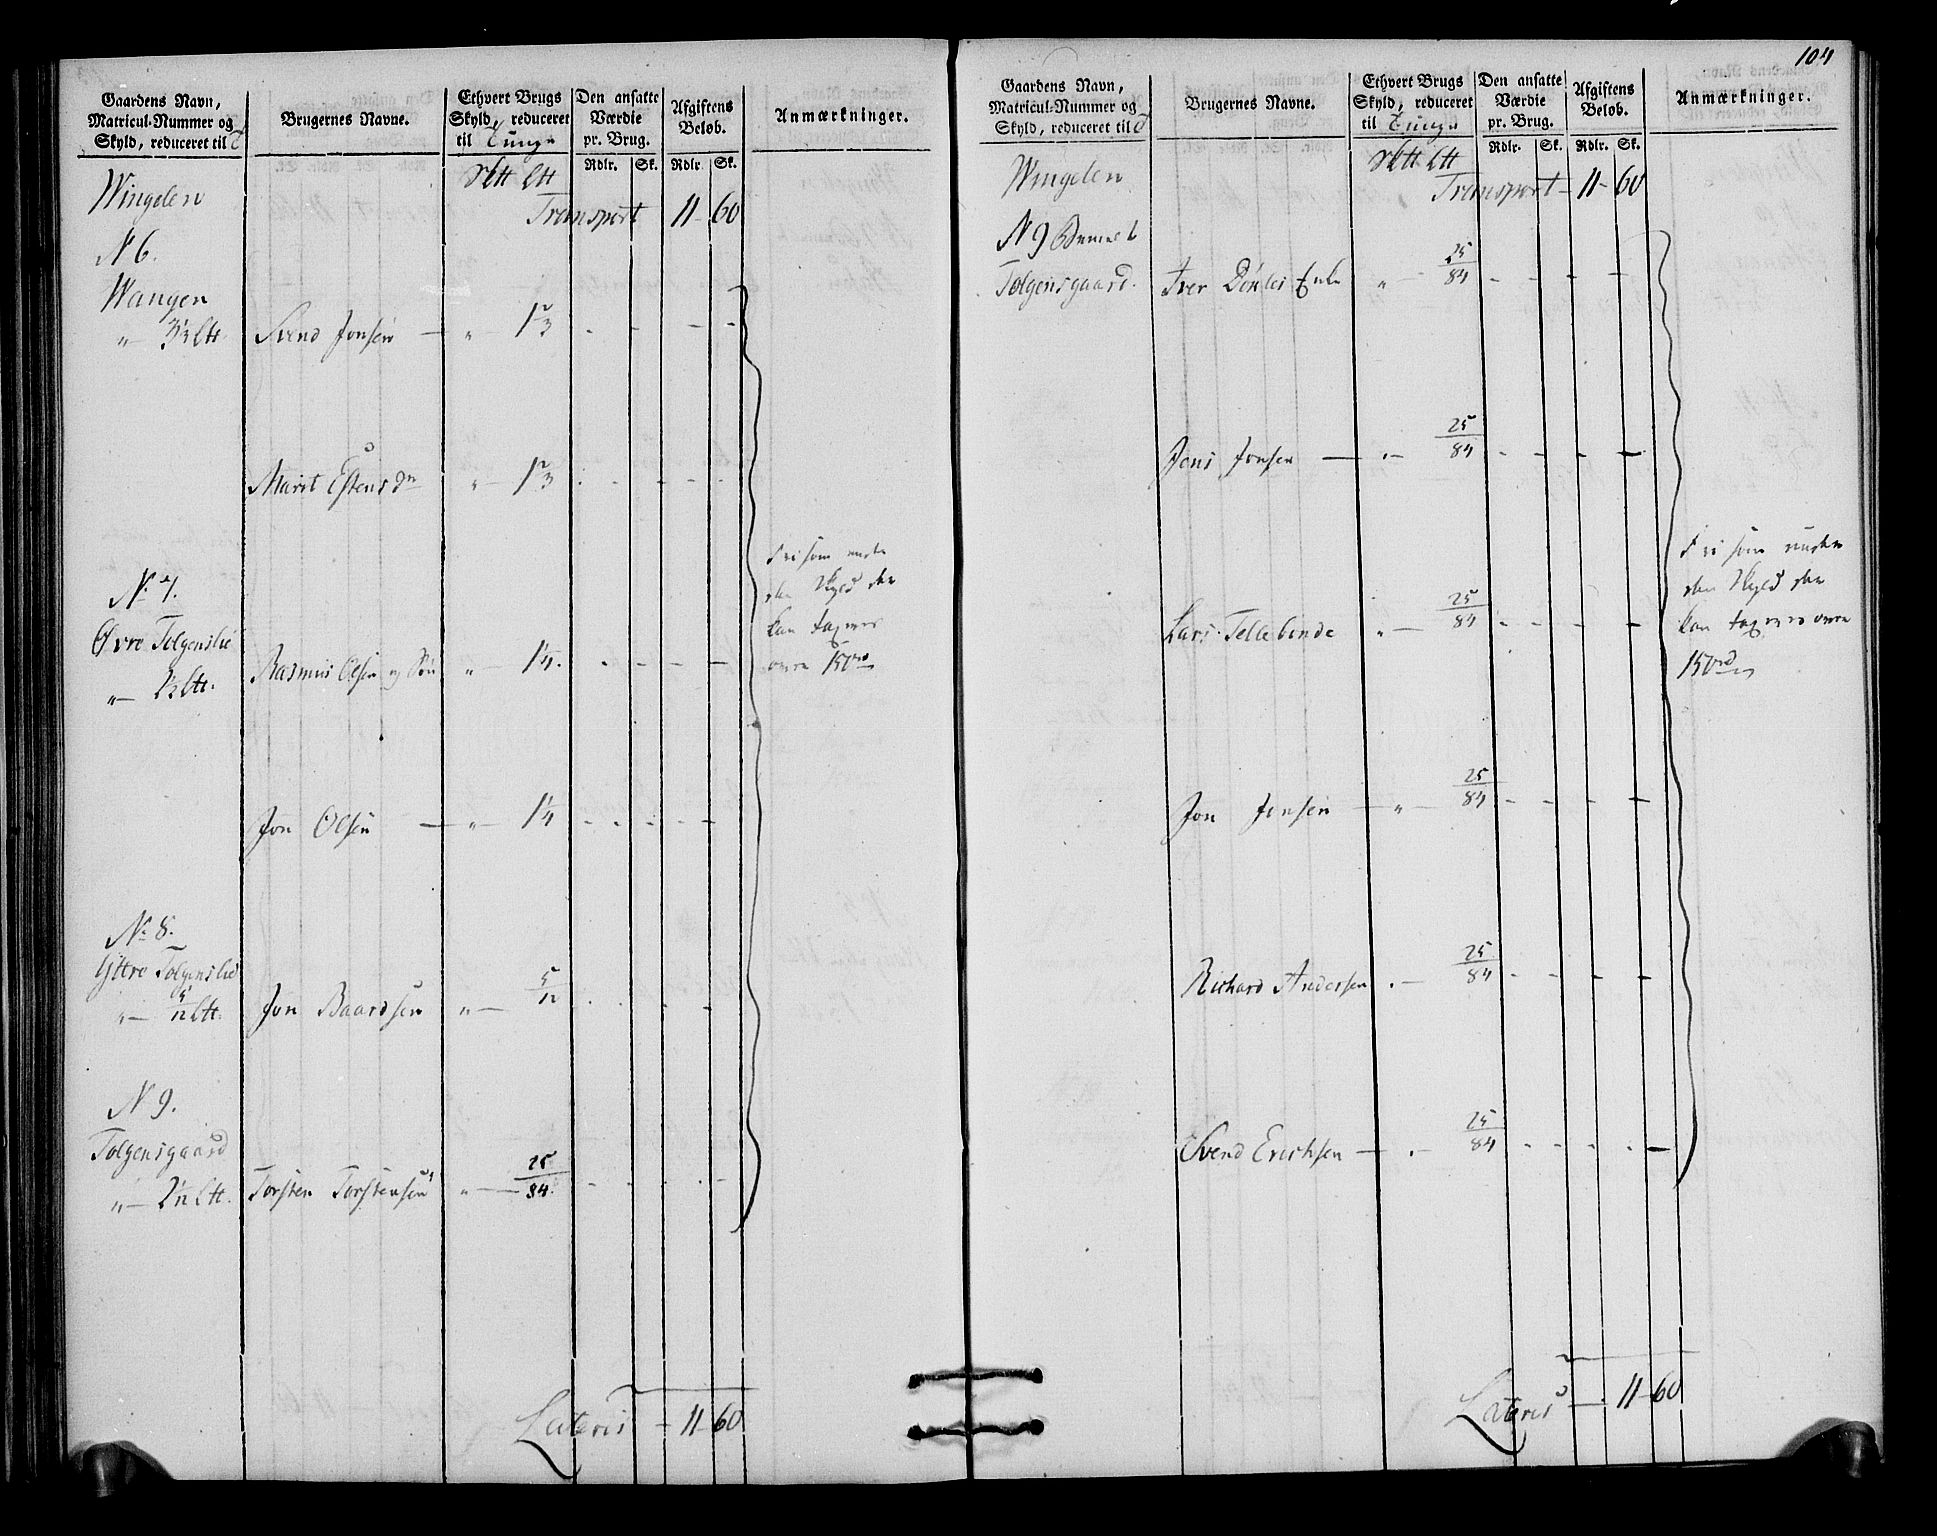 Gaardens Navn,
Matricul-Nummer og
Skyld, reduceret til
Brugernes Navne.
Ethvert Brugs
Skyld, reduceret
til Tunge
Den ansatte
Værdie
pr. Brug.
Rdlr. Sk.
Afgiftens
Beløb.
Rdlr. Sk.
Anmærkninger.
Wingelen
Transport 11 60
N 6.
Wangen
Svend Jonsen
Marit Estens
N 7.
Øvre Tolgenslie
Rasmus Olsen og Søn 1 1/4
Jon Olsen 1 1/4
Fri som
den Skyld der
kan taxeres
over 150
No 8.
Yttre Tolgenslie
5/12 Jon Baardsen 5/12
N 9.
Tolgensgaard
Torsten Torstensen 25/84
Lateris 11 60
104
Gaardens Navn,
Matricul-Nummer og
Skyld, reduceret til
Brugernes Navne.
Ethvert Brugs
Skyld, reduceret
til Tunge
Den ansatte
Værdie
pr. Brug.
Rdlr. Sk.
Afgiftens
Beløb.
Rdlr. Sk.
Anmærkninger.
Wingelen
Transport 11 60
N 9
Tolgensgaard. Iver Enke 25/84
Jens Jonsen 25/84
Lars Tellebonde 25/84
Fri som
den Skyld der
kan taxeres over
150
Jon Jonsen 25/84
Richard Andersen 25/84
Svend Erichsen 25/84
Lateris 11 60